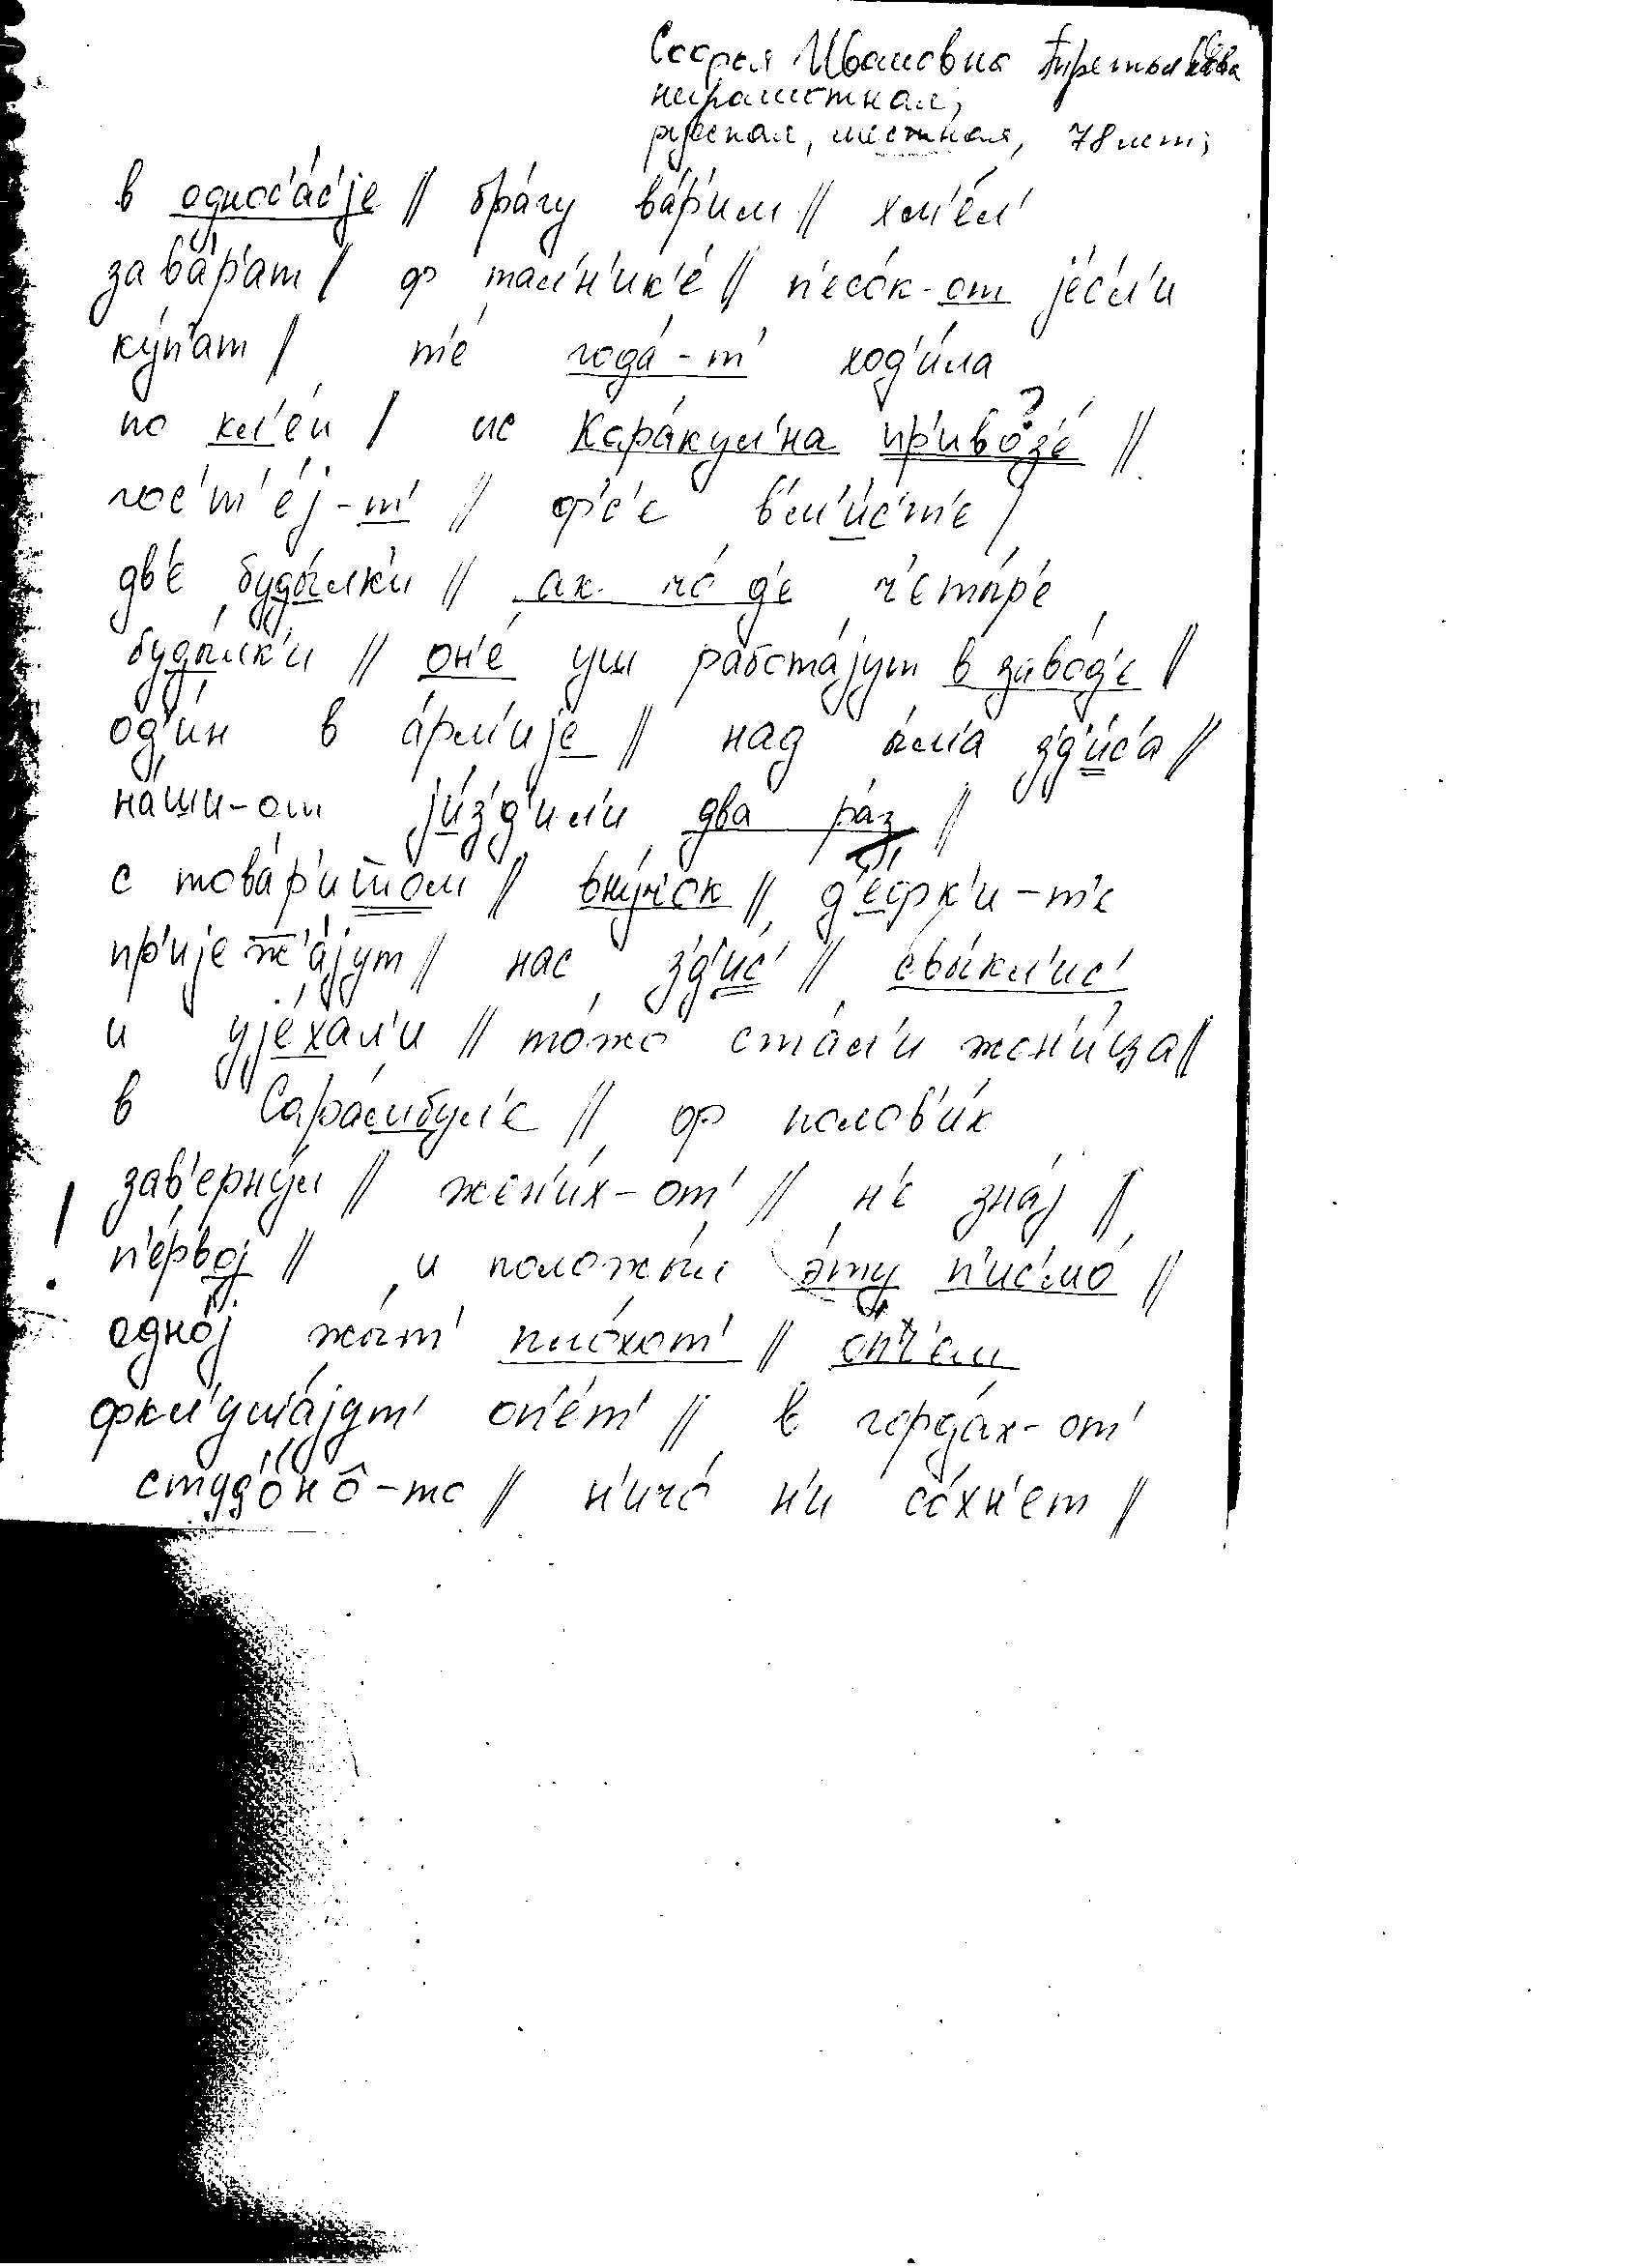 Софья Ивановна
неграмотная,
русская, местная, 78 лет;
в одноч'а́с'jе // бра́гу ва́р'им // хм'е́л'
зава́р'ат / ф тал'н'ик'е́ // п'есо́к-от jе́сл'и
ку́п'ат / т'е́ года́-т' ход'и́ла
по кл'е́и / ис Кара́кул'на пр'иво́з'е́ //
гос'т'е́j-т' // ф'с'е в'м'и́с'т'е /
дв'е буды́лк'и // ак чо́ д'е ч'еты́р'е
буды́лк'и // он'е́ уш рабо́таjут в заво́д'е //
од'и́н в а́рм'иjе // над ы́л'а зд'и́с'а //
на́ши-от jи́з'д'ил'и два ра́з //
с това́р'ишом // вну́чок // д'е́фк'и-т'е
пр'иjеж'а́jут // нас з'д'ис' // свы́кл'ис'
и уjе́хал'и // то́жо ста́л'и жен'и́ца //
в Сара́мбул'е // ф полов'и́к
зав'ерну́л // жен'и́х-от' // н'е зна́j //
п'е́рвоj // и положы́л э́ту п'ис'мо́ //
одно́j жы́т' пло́хот' //
фкл'уша́jут' оп'е́т' // в горда́х-от'
студ'о́но̂-то // н'ичо́ н'и со́хн'ет //